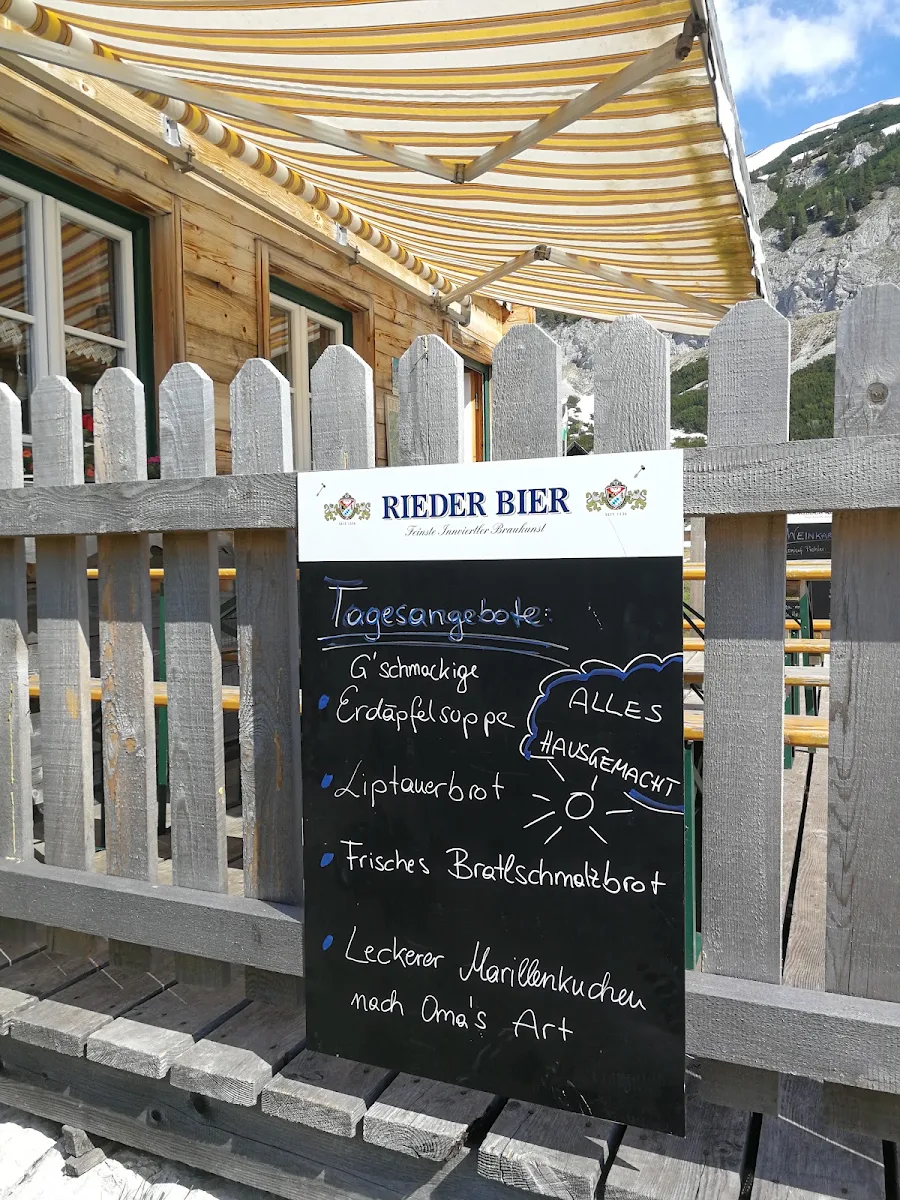 RIEDER BIER
Feinste Innviertler Braukunst
Tagesangebote:
G'schmackige
Erdäpfelsuppe
Liptauerbrot
Frisches Bratlschmalzbrot
Leckerer Marillenkuchen
nach Oma's Art
ALLES
HAUSGEMACHT
WEINKAR